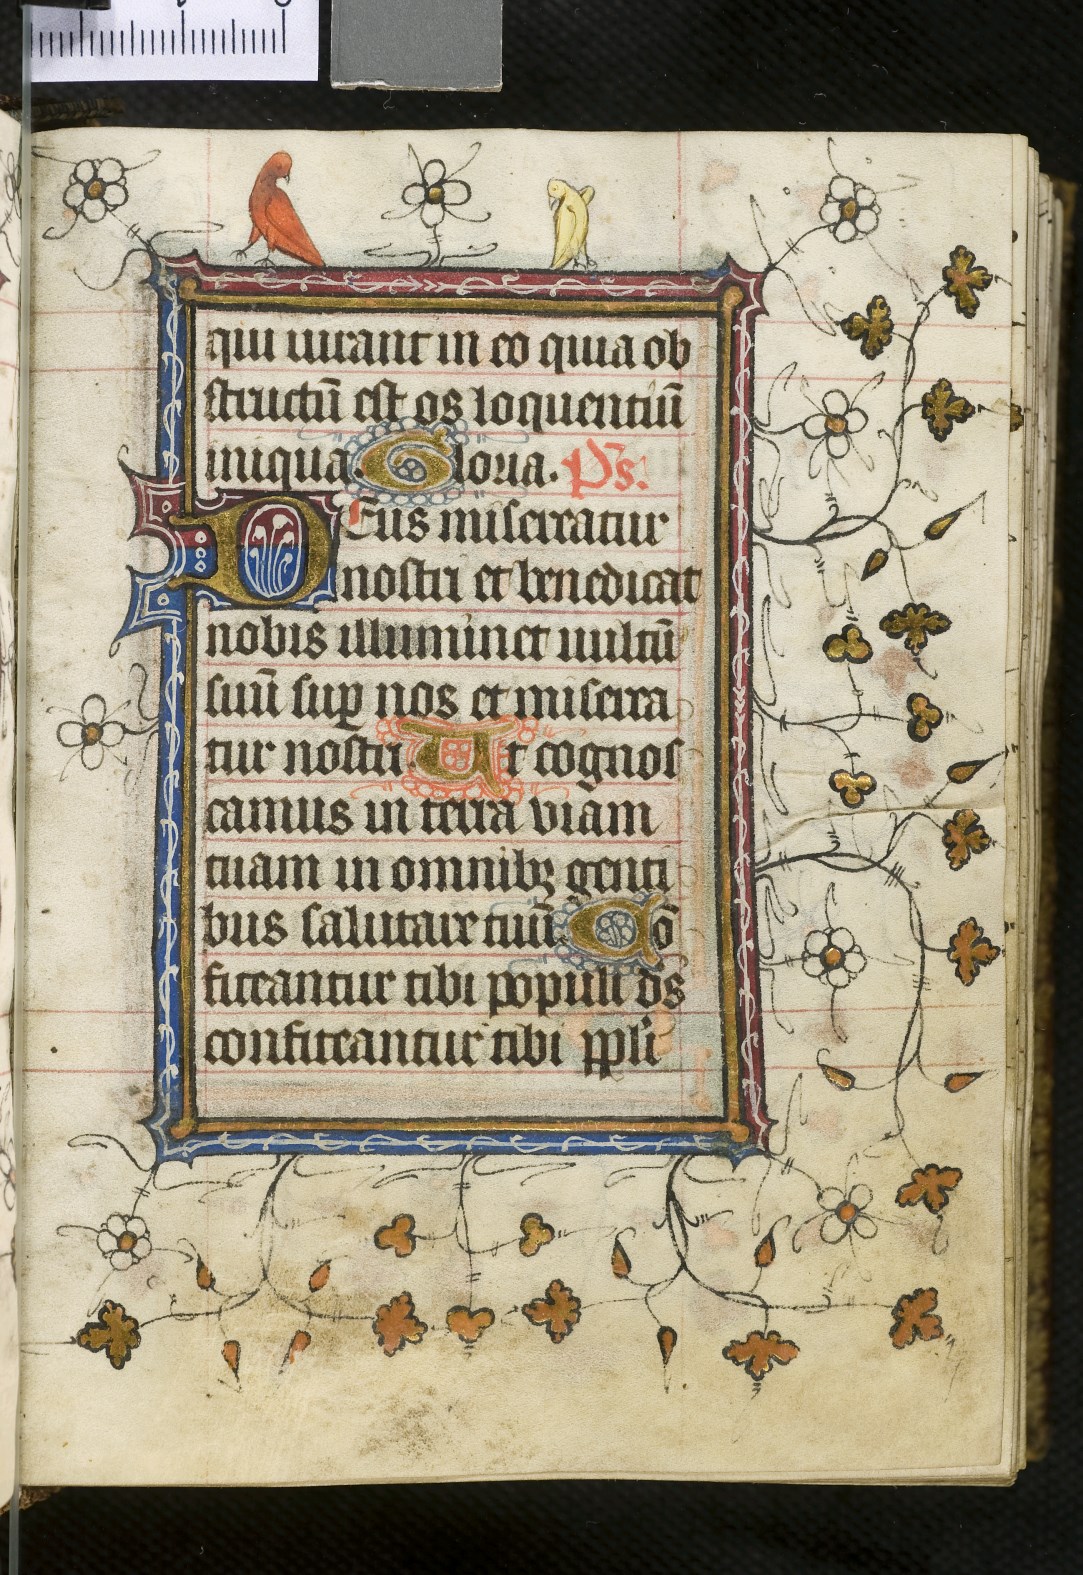 qui iurant in eo quia ob
structū est os loquentiū
iniqua. Gloria. Ps.
DEus misereatur
nostri et benedicat
nobis illuminet uultū
suū suꝑ nos et miserea
tur nostri. Ut cognos
camus in terra viam
tuam in omnibꝫ genti
bus salutare tuū. Cō
fiteantur tibi populi ds̄
confiteantur tibi ppl̄i